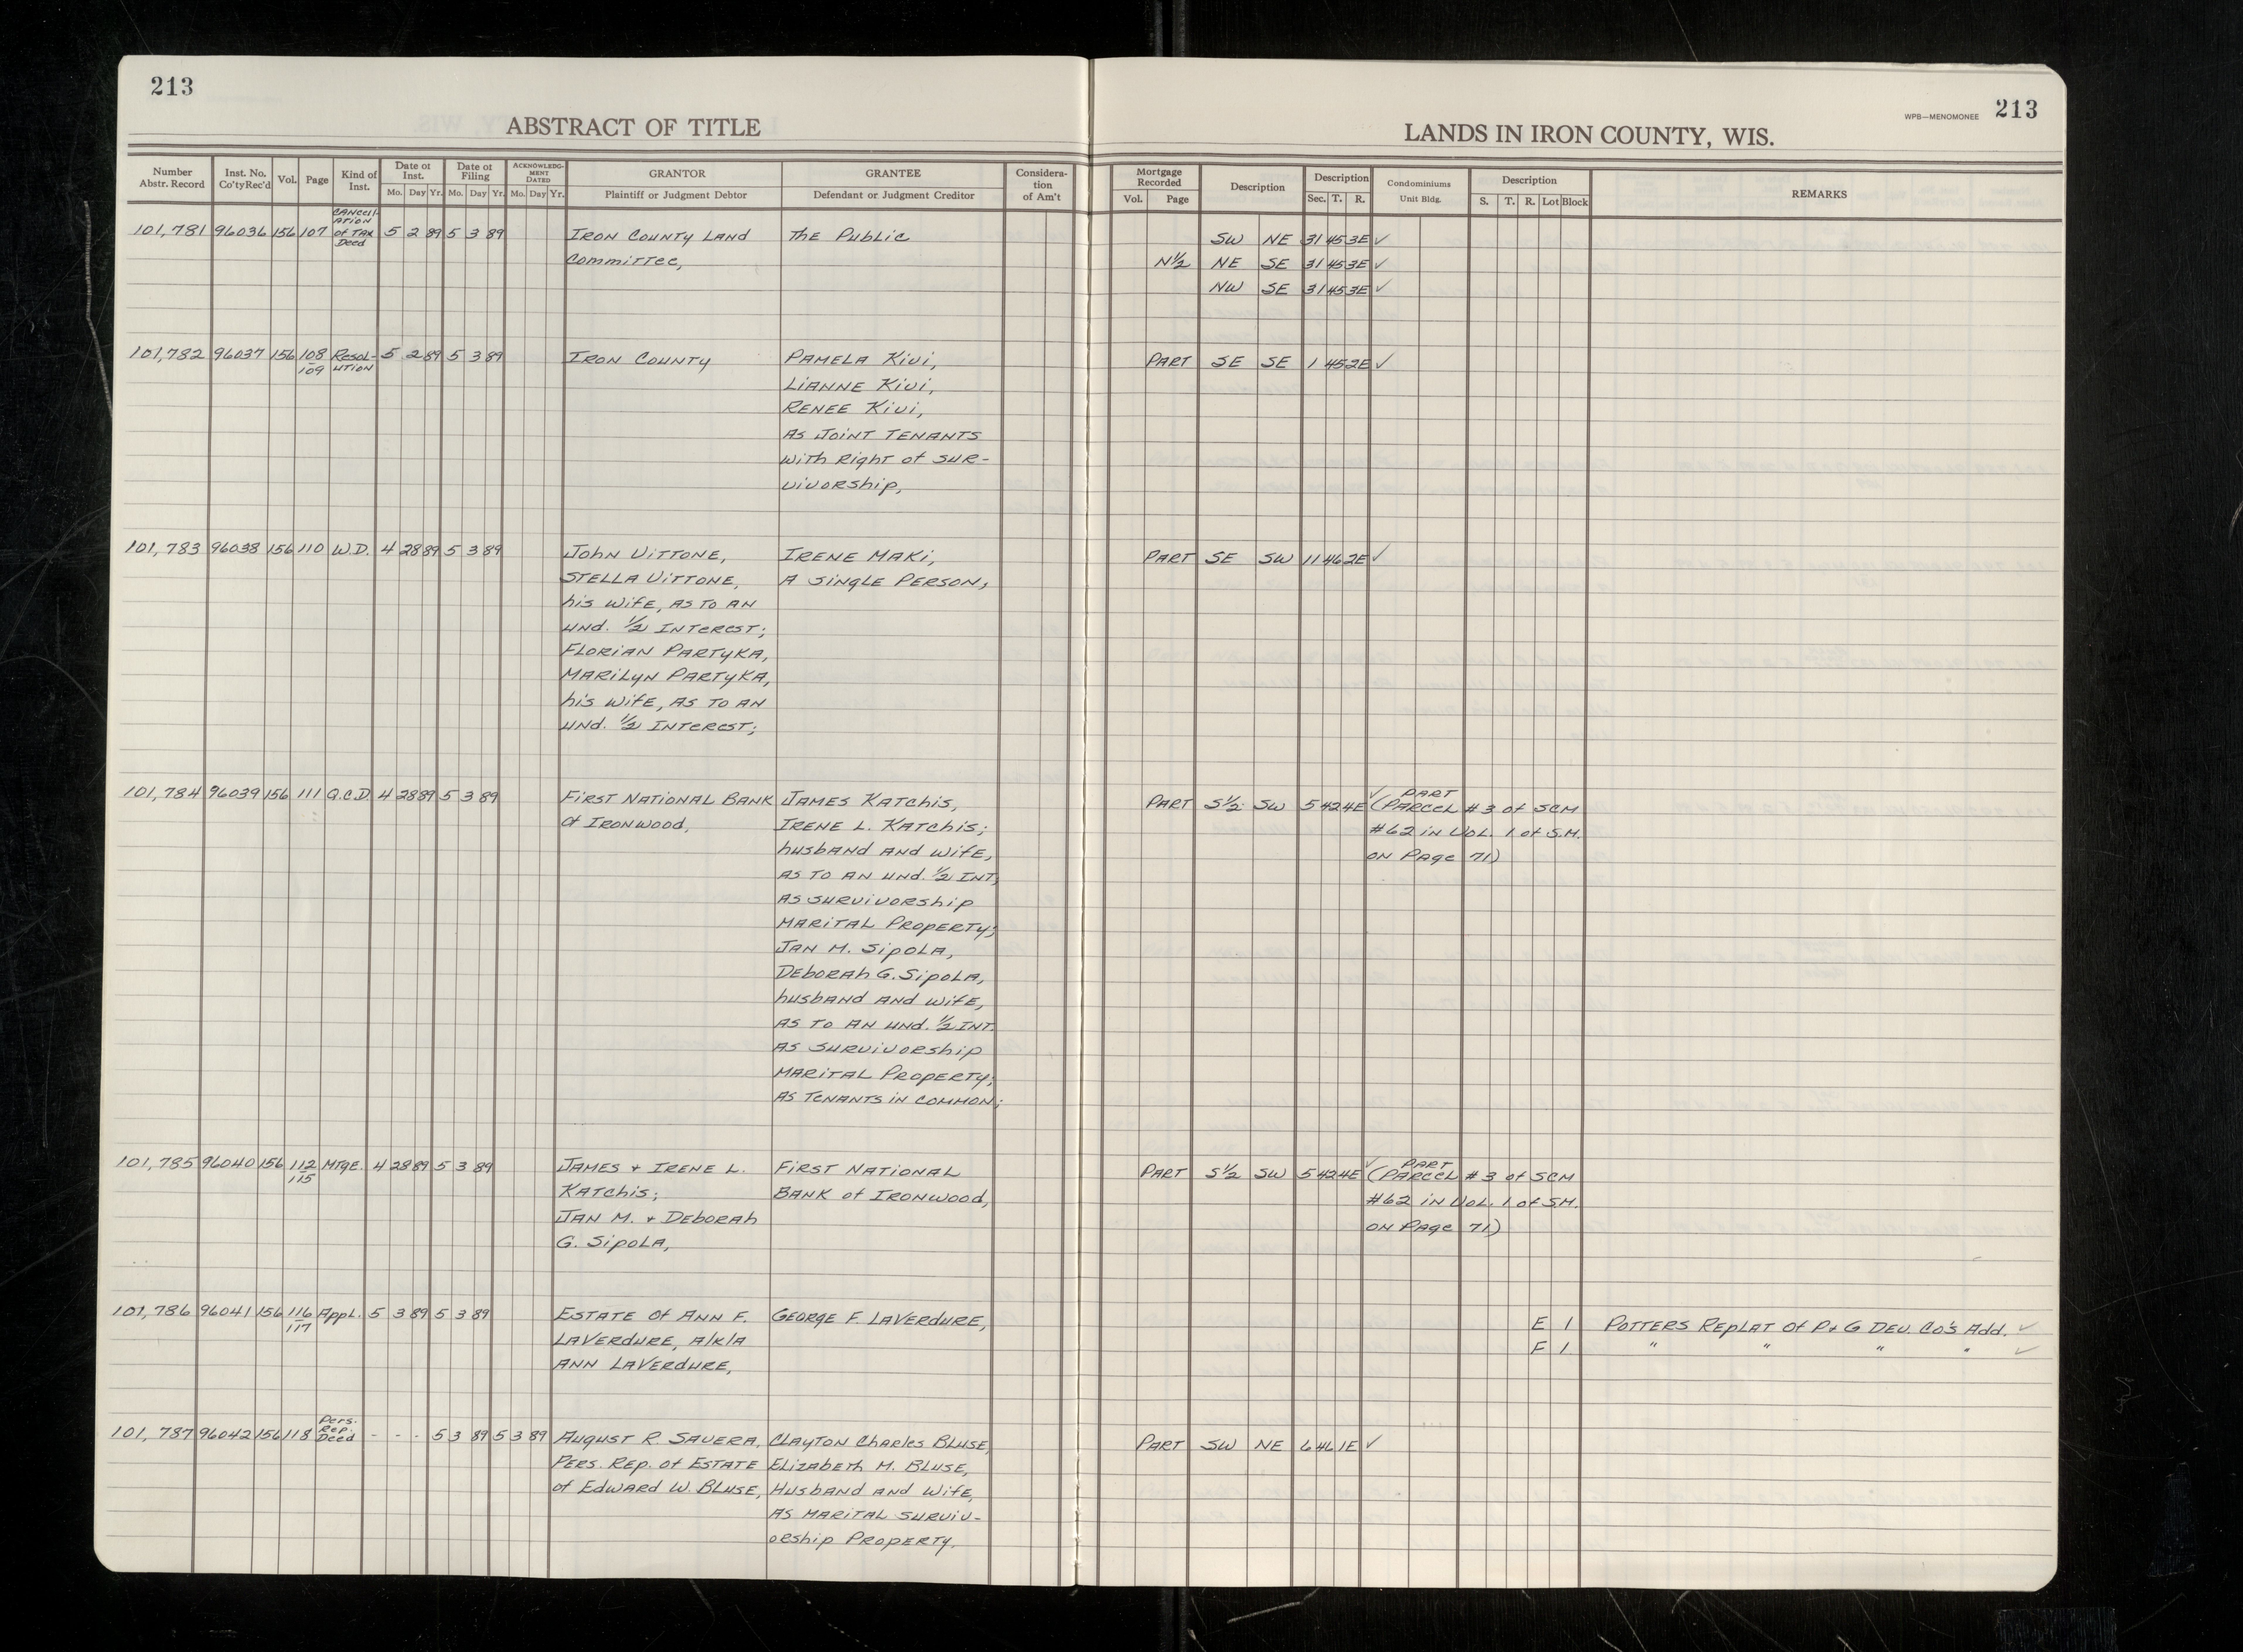 213
ABSTRACT OF TITLE
LANDS IN IRON COUNTY, WIS.
WPB—MENOMONEE 213
Number Abstr. Record | Inst. No. Co'ty Rec'd | Vol. | Page | Kind of Inst. | Date of Inst. Mo. Day Yr. | Date of Filing Mo. Day Yr. | ACKNOWLEDGMENT DATED Mo. Day Yr. | GRANTOR Plaintiff or Judgment Debtor | GRANTEE Defendant or Judgment Creditor | Consideration of Am't | Mortgage Recorded Vol. Page | Description | Description Sec. T. R. | Condominiums Unit Bldg. | Description S. T. R. Lot Block | REMARKS
101,781 96036 156 107 Cancellation of Tax Deed 5 2 89 5 3 89 Iron County Land The Public SW NE 31 45 3E ✓
Committee, N½ NE SE 31 45 3E ✓
NW SE 31 45 3E ✓
101,782 96037 156 108/109 Resolution 5 2 89 5 3 89 Iron County Pamela Kivi, Part SE SE 1 45 2E ✓
Lianne Kivi,
Renee Kivi,
as Joint Tenants
with Right of Sur-
vivorship,
101,783 96038 156 110 W.D. 4 28 89 5 3 89 John Vittone, Irene Maki, Part SE SW 11 46 2E ✓
Stella Vittone, a single person,
his wife, as to an
und. ½ Interest;
Florian Partyka,
Marilyn Partyka,
his wife, as to an
und. ½ Interest;
101,784 96039 156 111 Q.C.D. 4 28 89 5 3 89 First National Bank James Katchis, Part S½ SW 5 42 4E ✓ Part (Parcel #3 of SCM
of Ironwood, Irene L. Katchis; #62 in Vol. 1 of S.M.
husband and wife, on Page 71)
as to an und. ½ Int,
as survivorship
Marital Property;
Jan M. Sipola,
Deborah G. Sipola,
husband and wife,
as to an und. ½ Int.
as survivorship
Marital Property;
as tenants in common;
101,785 96040 156 112/115 Mtge. 4 28 89 5 3 89 James + Irene L. First National Part S½ SW 5 42 4E ✓ Part (Parcel #3 of SCM
Katchis; Bank of Ironwood, #62 in Vol. 1 of S.M.
Jan M. + Deborah on Page 71)
G. Sipola,
101,786 96041 156 116/117 Appl. 5 3 89 5 3 89 Estate of Ann F. George F. LaVerdure, E 1 Potters Replat of P+G Dev. Co's Add. ✓
LaVerdure, a/k/a F 1 " " " " ✓
Ann LaVerdure,
101,787 96042 156 118 Pers. Rep. Deed - - - 5 3 89 5 3 89 August R. Savera, Clayton Charles Bluse, Part SW NE 6 46 1E ✓
Pers. Rep. of Estate Elizabeth M. Bluse,
of Edward W. Bluse, Husband and Wife,
as marital surviv-
orship Property.